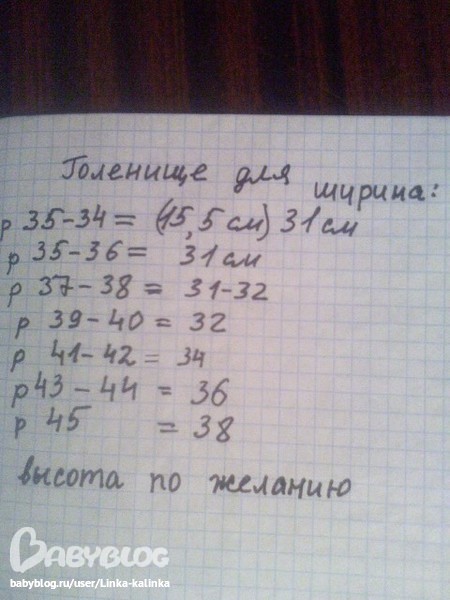 Голенище для ширина:
р 35-34 = (15,5 см) 31 см
р 35-36 = 31 см
р 37-38 = 31-32
р 39-40 = 32
р 41-42 = 34
р 43-44 = 36
р 45 = 38
высота по желанию
BABYBLOG
babyblog.ru/user/Linka-kalinka